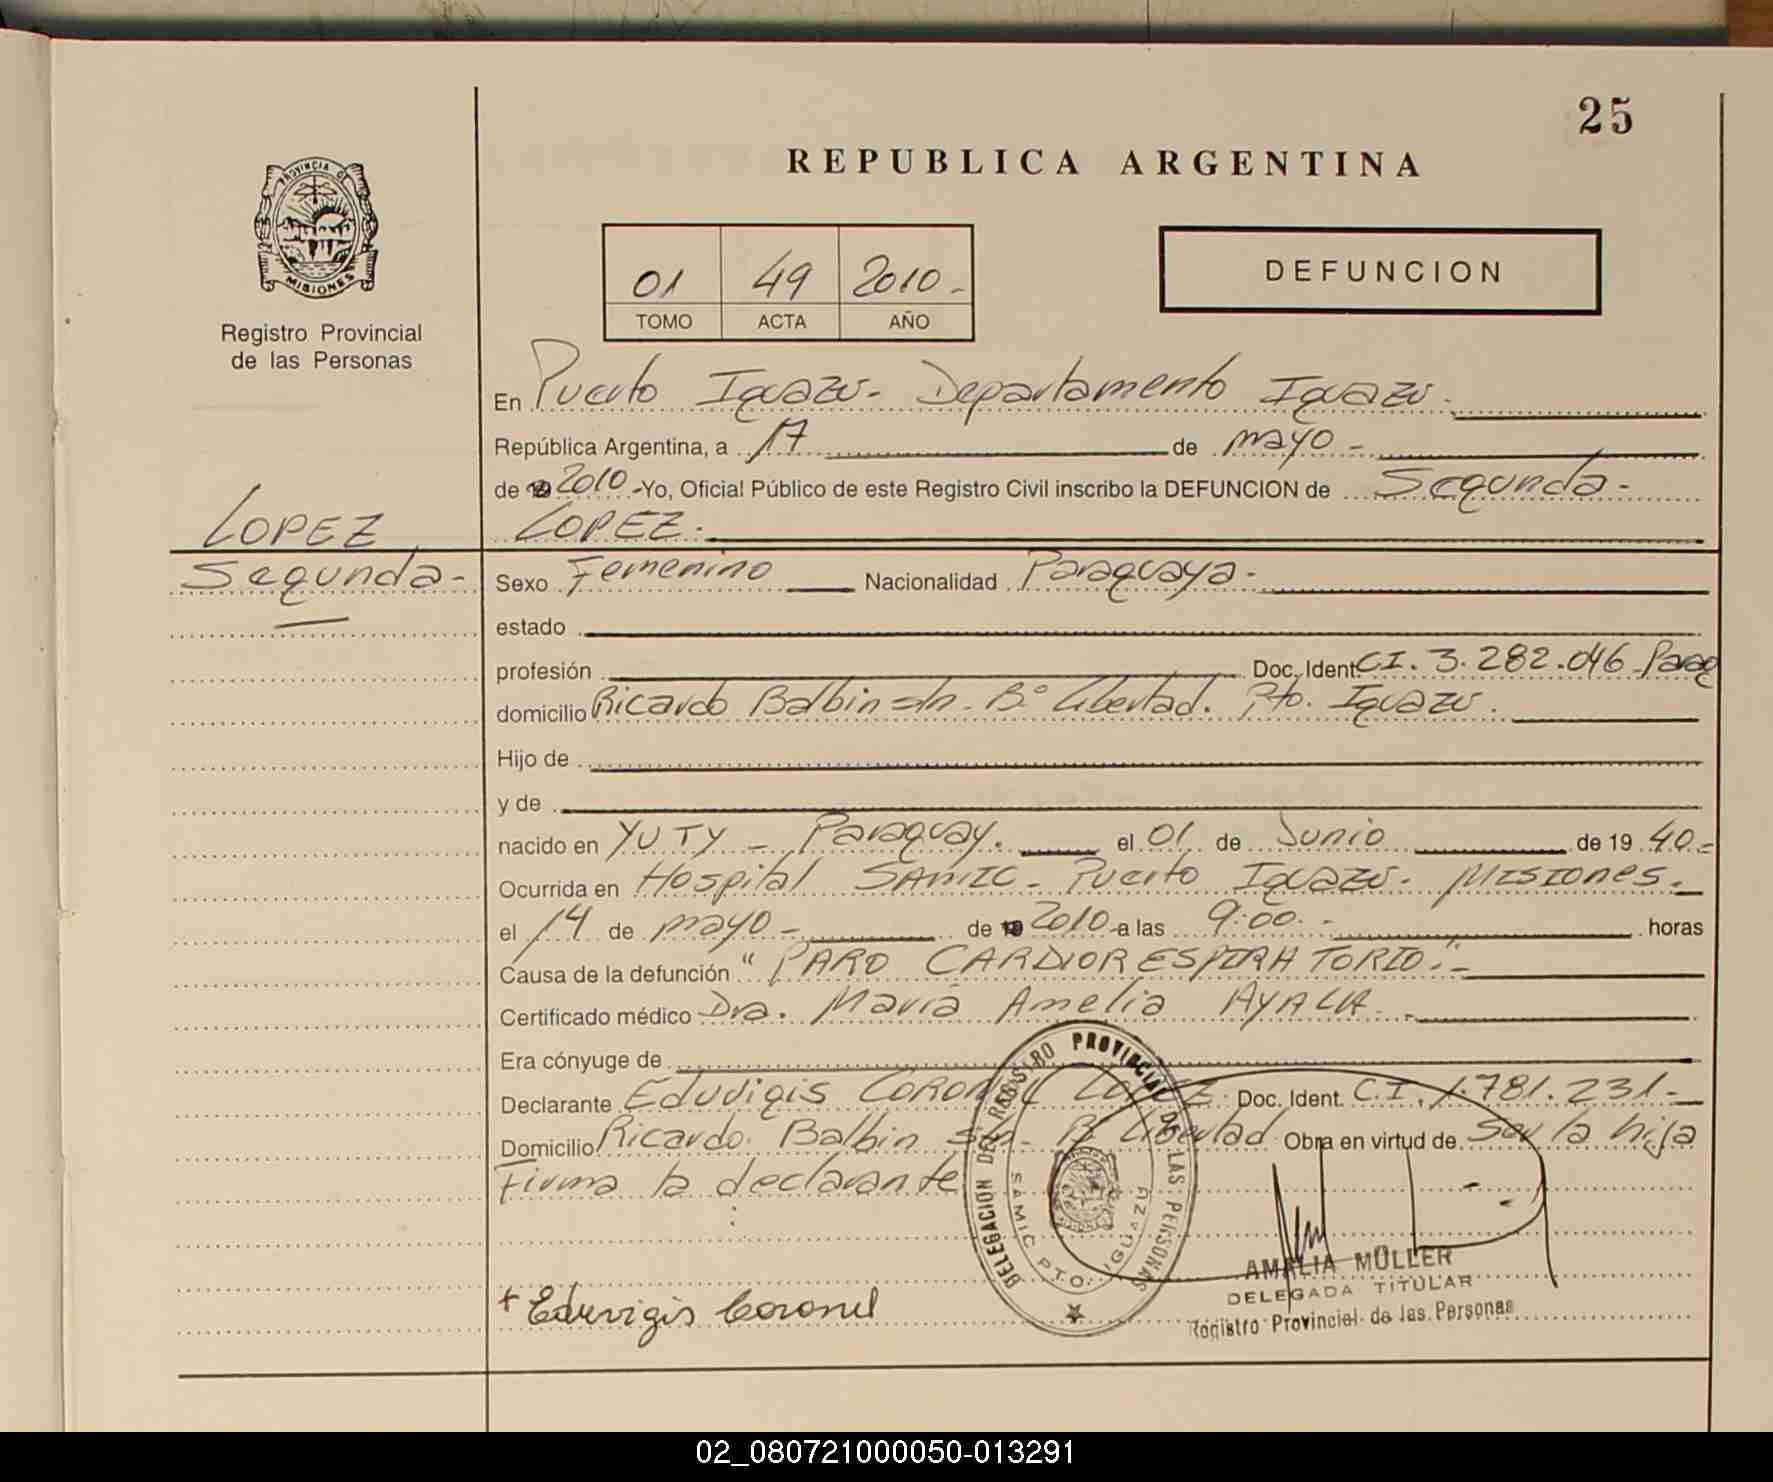 25
REPUBLICA ARGENTINA
PROVINCIA DE
MISIONES
Registro Provincial
de las Personas
01 49 2010-
TOMO ACTA AÑO
DEFUNCION
En Puerto Iguazu- Departamento Iguazu.
República Argentina, a 17 de mayo-
de 2010-Yo, Oficial Público de este Registro Civil inscribo la DEFUNCION de Segunda-
LOPEZ.
LOPEZ
Segunda-
Sexo Femenino Nacionalidad Paraguaya-
estado
profesión Doc. Ident. CI. 3.282.046-Parag
domicilio Ricardo Balbin s/n. B° Libertad. Pto. Iguazu.
Hijo de
y de
nacido en YUTY - Paraguay. el 01 de Junio de 19 40-
Ocurrida en Hospital SAMIC- Puerto Iguazu- MISIONES.-
el 14 de mayo- de 2010-a las 9:00.- horas
Causa de la defunción "PARO CARDIORESPIRATORIO".-
Certificado médico Dra. Maria Amelia AYALA.-
Era cónyuge de
Declarante Eduvigis CORONEL LOPEZ Doc. Ident. C.I. 1.781.231-
Domicilio Ricardo Balbin s/n- B° Libertad Obra en virtud de Ser la hija
Firma la declarante
DELEGACION DEL REGISTRO PROVINCIAL DE LAS PERSONAS
SAMIC PTO. IGUAZU
AMALIA MÜLLER
DELEGADA TITULAR
Registro Provincial de las Personas
+ Eduvigis Coronel
02_080721000050-013291